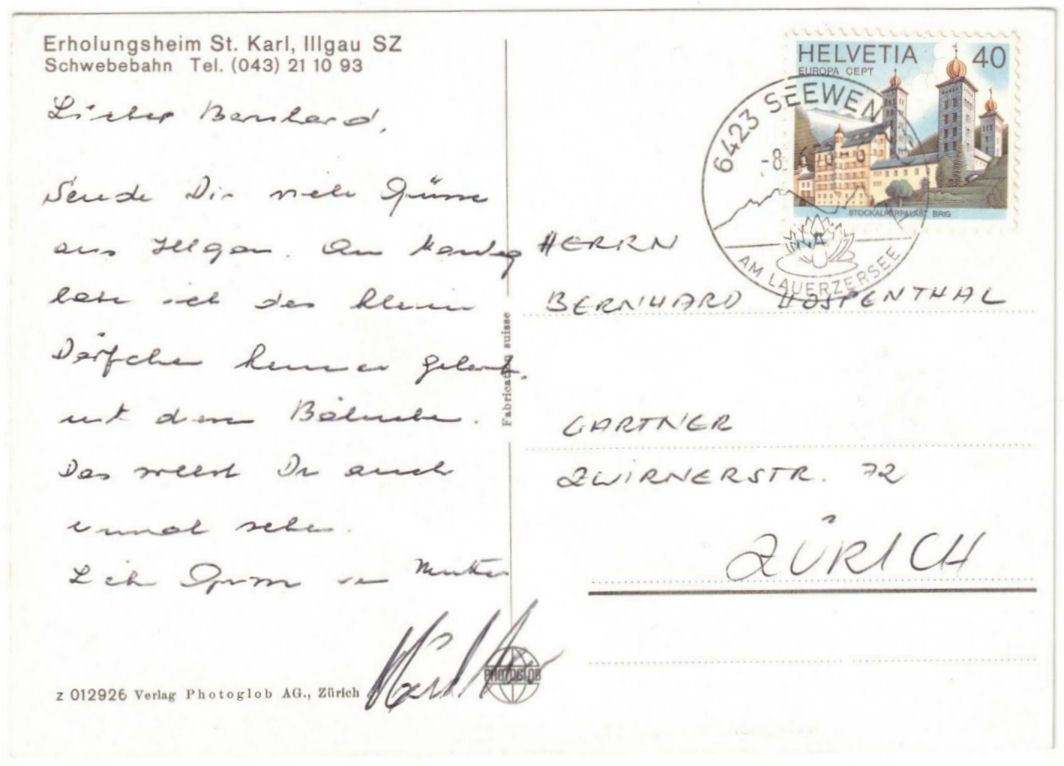 Erholungsheim St. Karl, Illgau SZ
Schwebebahn Tel. (043) 21 10 93
Lieber Bernhard,
Sende Dir viele Grüsse
aus Illgau. Am
habe ich das kleine
Dörfchen kennen gelernt
mit dem Bähnchen.
Das musst Du auch
einmal sehen.
Lieb Gruss an Mutter
z 012926 Verlag Photoglob AG., Zürich
PHOTOGLOB
Fabrication suisse
HELVETIA 40
EUROPA CEPT
STOCKALPERPALAST BRIG
6423 SEEWEN
-8.
AM LAUERZERSEE
HERRN
BERNHARD HOSPENTHAL
GÄRTNER
ZWIRNERSTR. 72
ZÜRICH